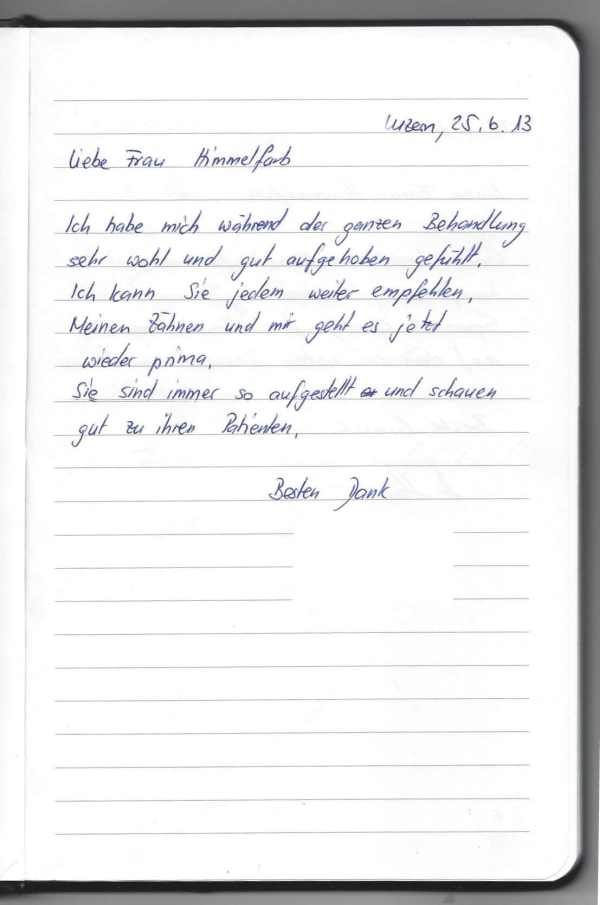 Luzern, 25.6.13
Liebe Frau Himmelfarb
Ich habe mich während der ganzen Behandlung
sehr wohl und gut aufgehoben gefühlt.
Ich kann Sie jedem weiter empfehlen.
Meinen Zähnen und mir geht es jetzt
wieder prima.
Sie sind immer so aufgestellt und schauen
gut zu ihren Patienten.
Besten Dank